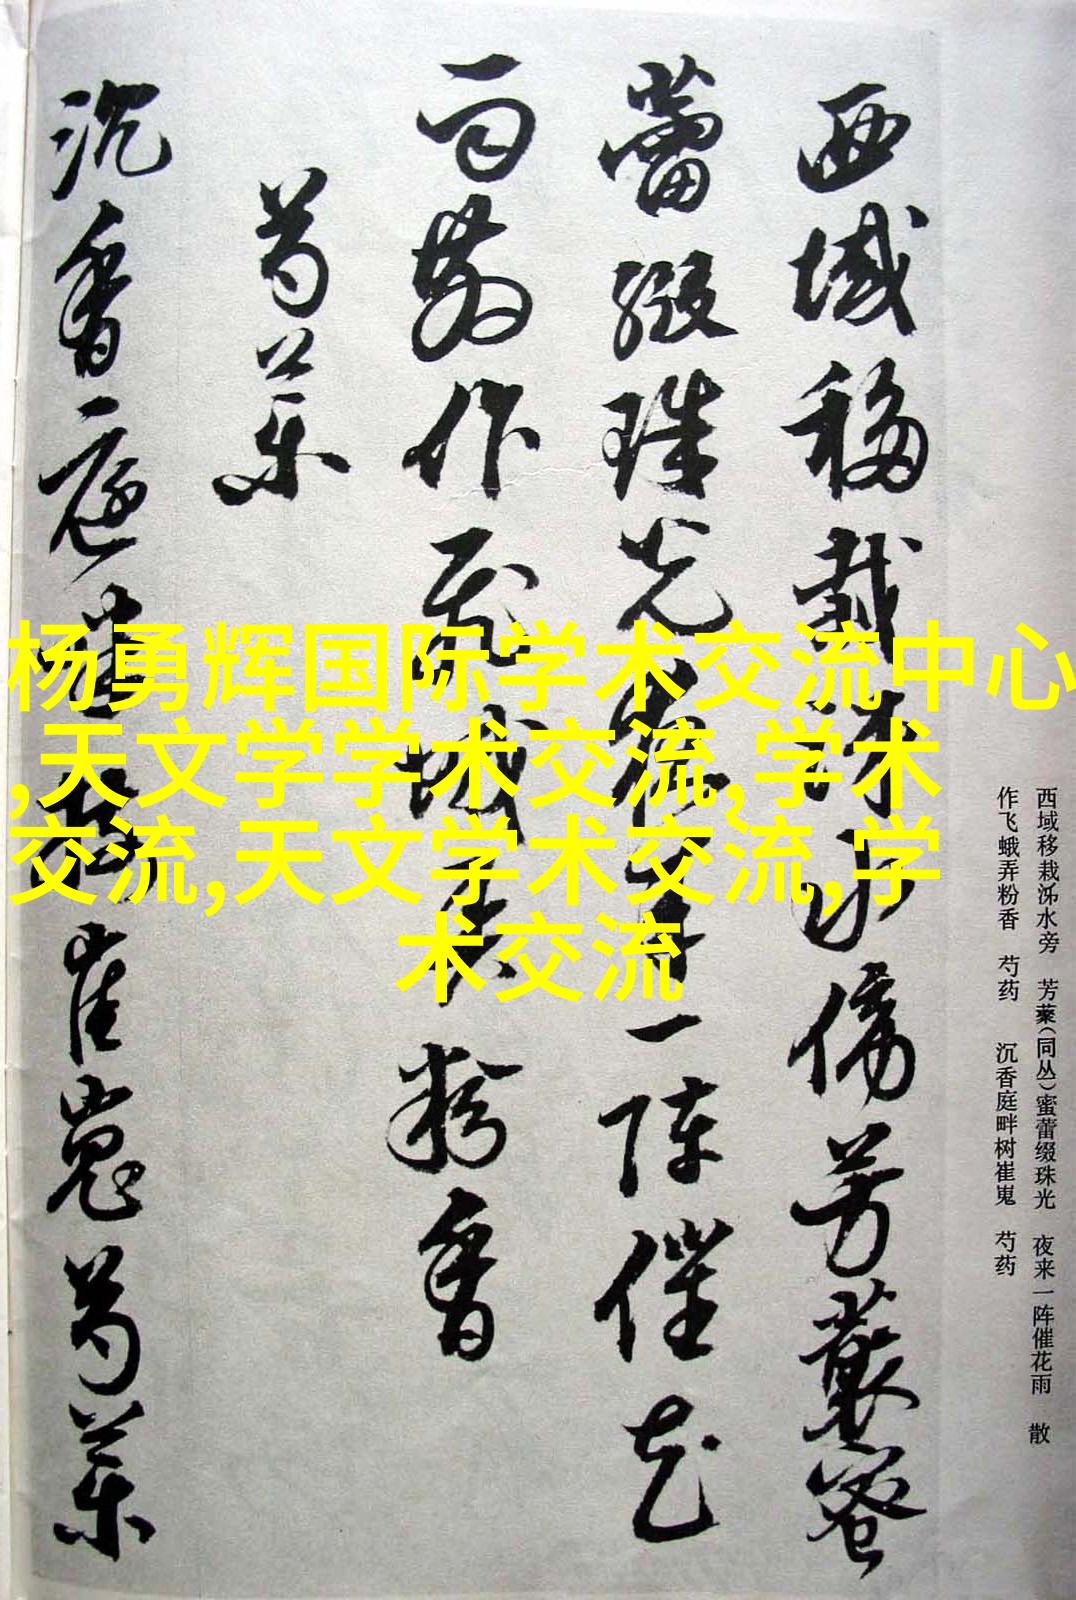 西域移栽泲水旁　芳藂(同丛)蜜蕾缀珠光　夜来一阵催花雨　散
作飞蛾弄粉香　芍药　沉香庭畔树崔嵬　芍药
西域移栽泲水傍芳藂蜜
蕾缀珠光夜来一阵催花
雨散作飞蛾弄粉香
芍药
沉香庭畔树崔嵬芍药
杨勇辉国际学术交流中心
,天文学学术交流,学术
交流,天文学术交流,学
术交流